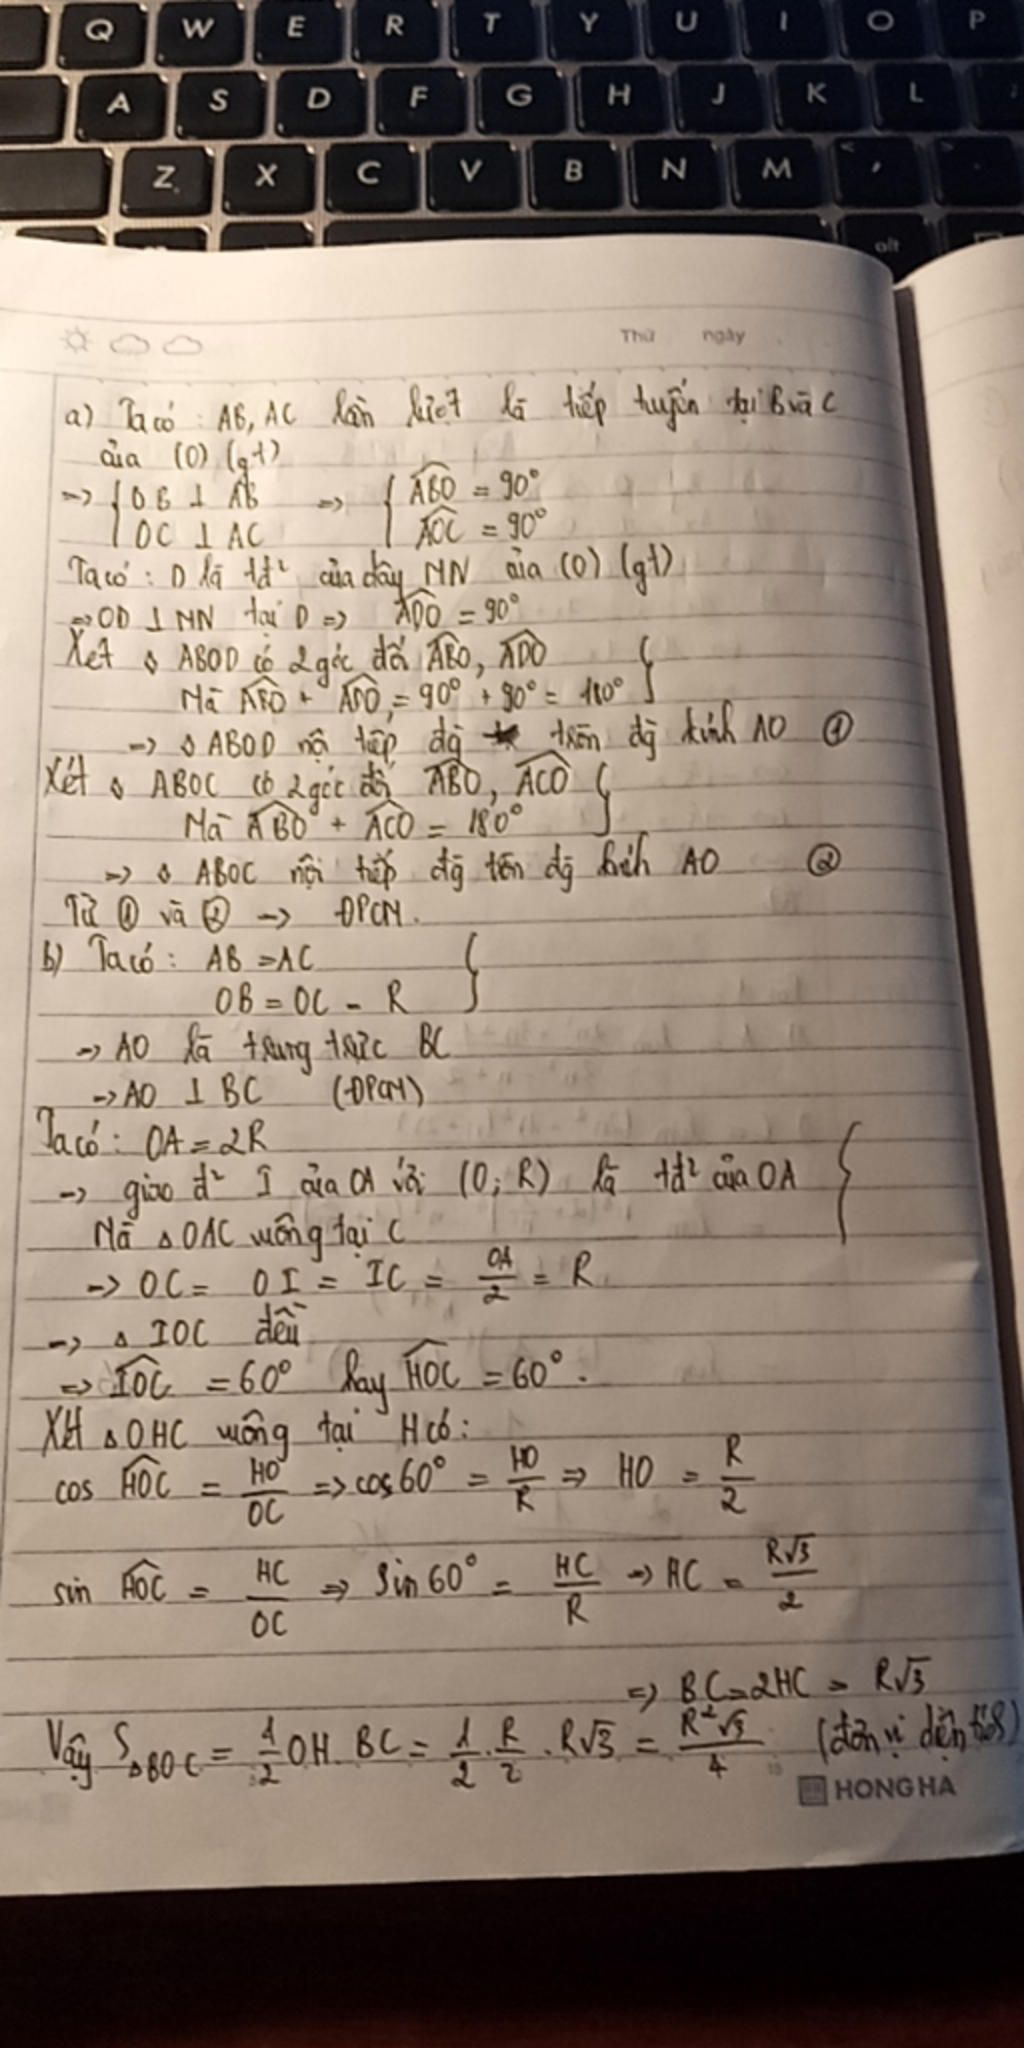 Q W E R T Y U I O P
A S D F G H J K L
Z X C V B N M < , >
alt
Thứ ngày
a) Ta có : AB, AC lần lượt là tiếp tuyến tại B và C
của (O) (gt)
=> { OB ⊥ AB => { \widehat{ABO} = 90°
OC ⊥ AC \widehat{AOC} = 90°
Ta có : D là tđ² của dây MN của (O) (gt)
=> OD ⊥ MN tại D => \widehat{ADO} = 90°
Xét ◊ ABOD có 2 góc đối \widehat{ABO}, \widehat{ADO} }
Mà \widehat{ABO} + \widehat{ADO} = 90° + 90° = 180°
-> ◊ ABOD nội tiếp đg trên đg kính AO ①
Xét ◊ ABOC có 2 góc đối \widehat{ABO}, \widehat{ACO} }
Mà \widehat{ABO} + \widehat{ACO} = 180°
-> ◊ ABOC nội tiếp đg tên đg kính AO ②
Từ ① và ② -> ĐPCM.
b) Ta có : AB = AC }
OB = OC = R
-> AO là trung trực BC
-> AO ⊥ BC (ĐPCM)
Ta có : OA = 2R
-> giao đ² I của OA với (O; R) là tđ² của OA }
Mà △OAC vuông tại C
-> OC = OI = IC = \frac{OA}{2} = R
-> △ IOC đều
=> \widehat{IOC} = 60° hay \widehat{HOC} = 60°.
Xét △OHC vuông tại H có :
cos \widehat{HOC} = \frac{HO}{OC} => cos 60° = \frac{HO}{R} => HO = \frac{R}{2}
sin \widehat{HOC} = \frac{HC}{OC} => sin 60° = \frac{HC}{R} -> HC = \frac{R√3}{2}
=> BC = 2HC = R√3
Vậy S△BOC = \frac{1}{2} OH . BC = \frac{1}{2} . \frac{R}{2} . R√3 = \frac{R²√3}{4} (đơn vị diện tích)
HONG HA